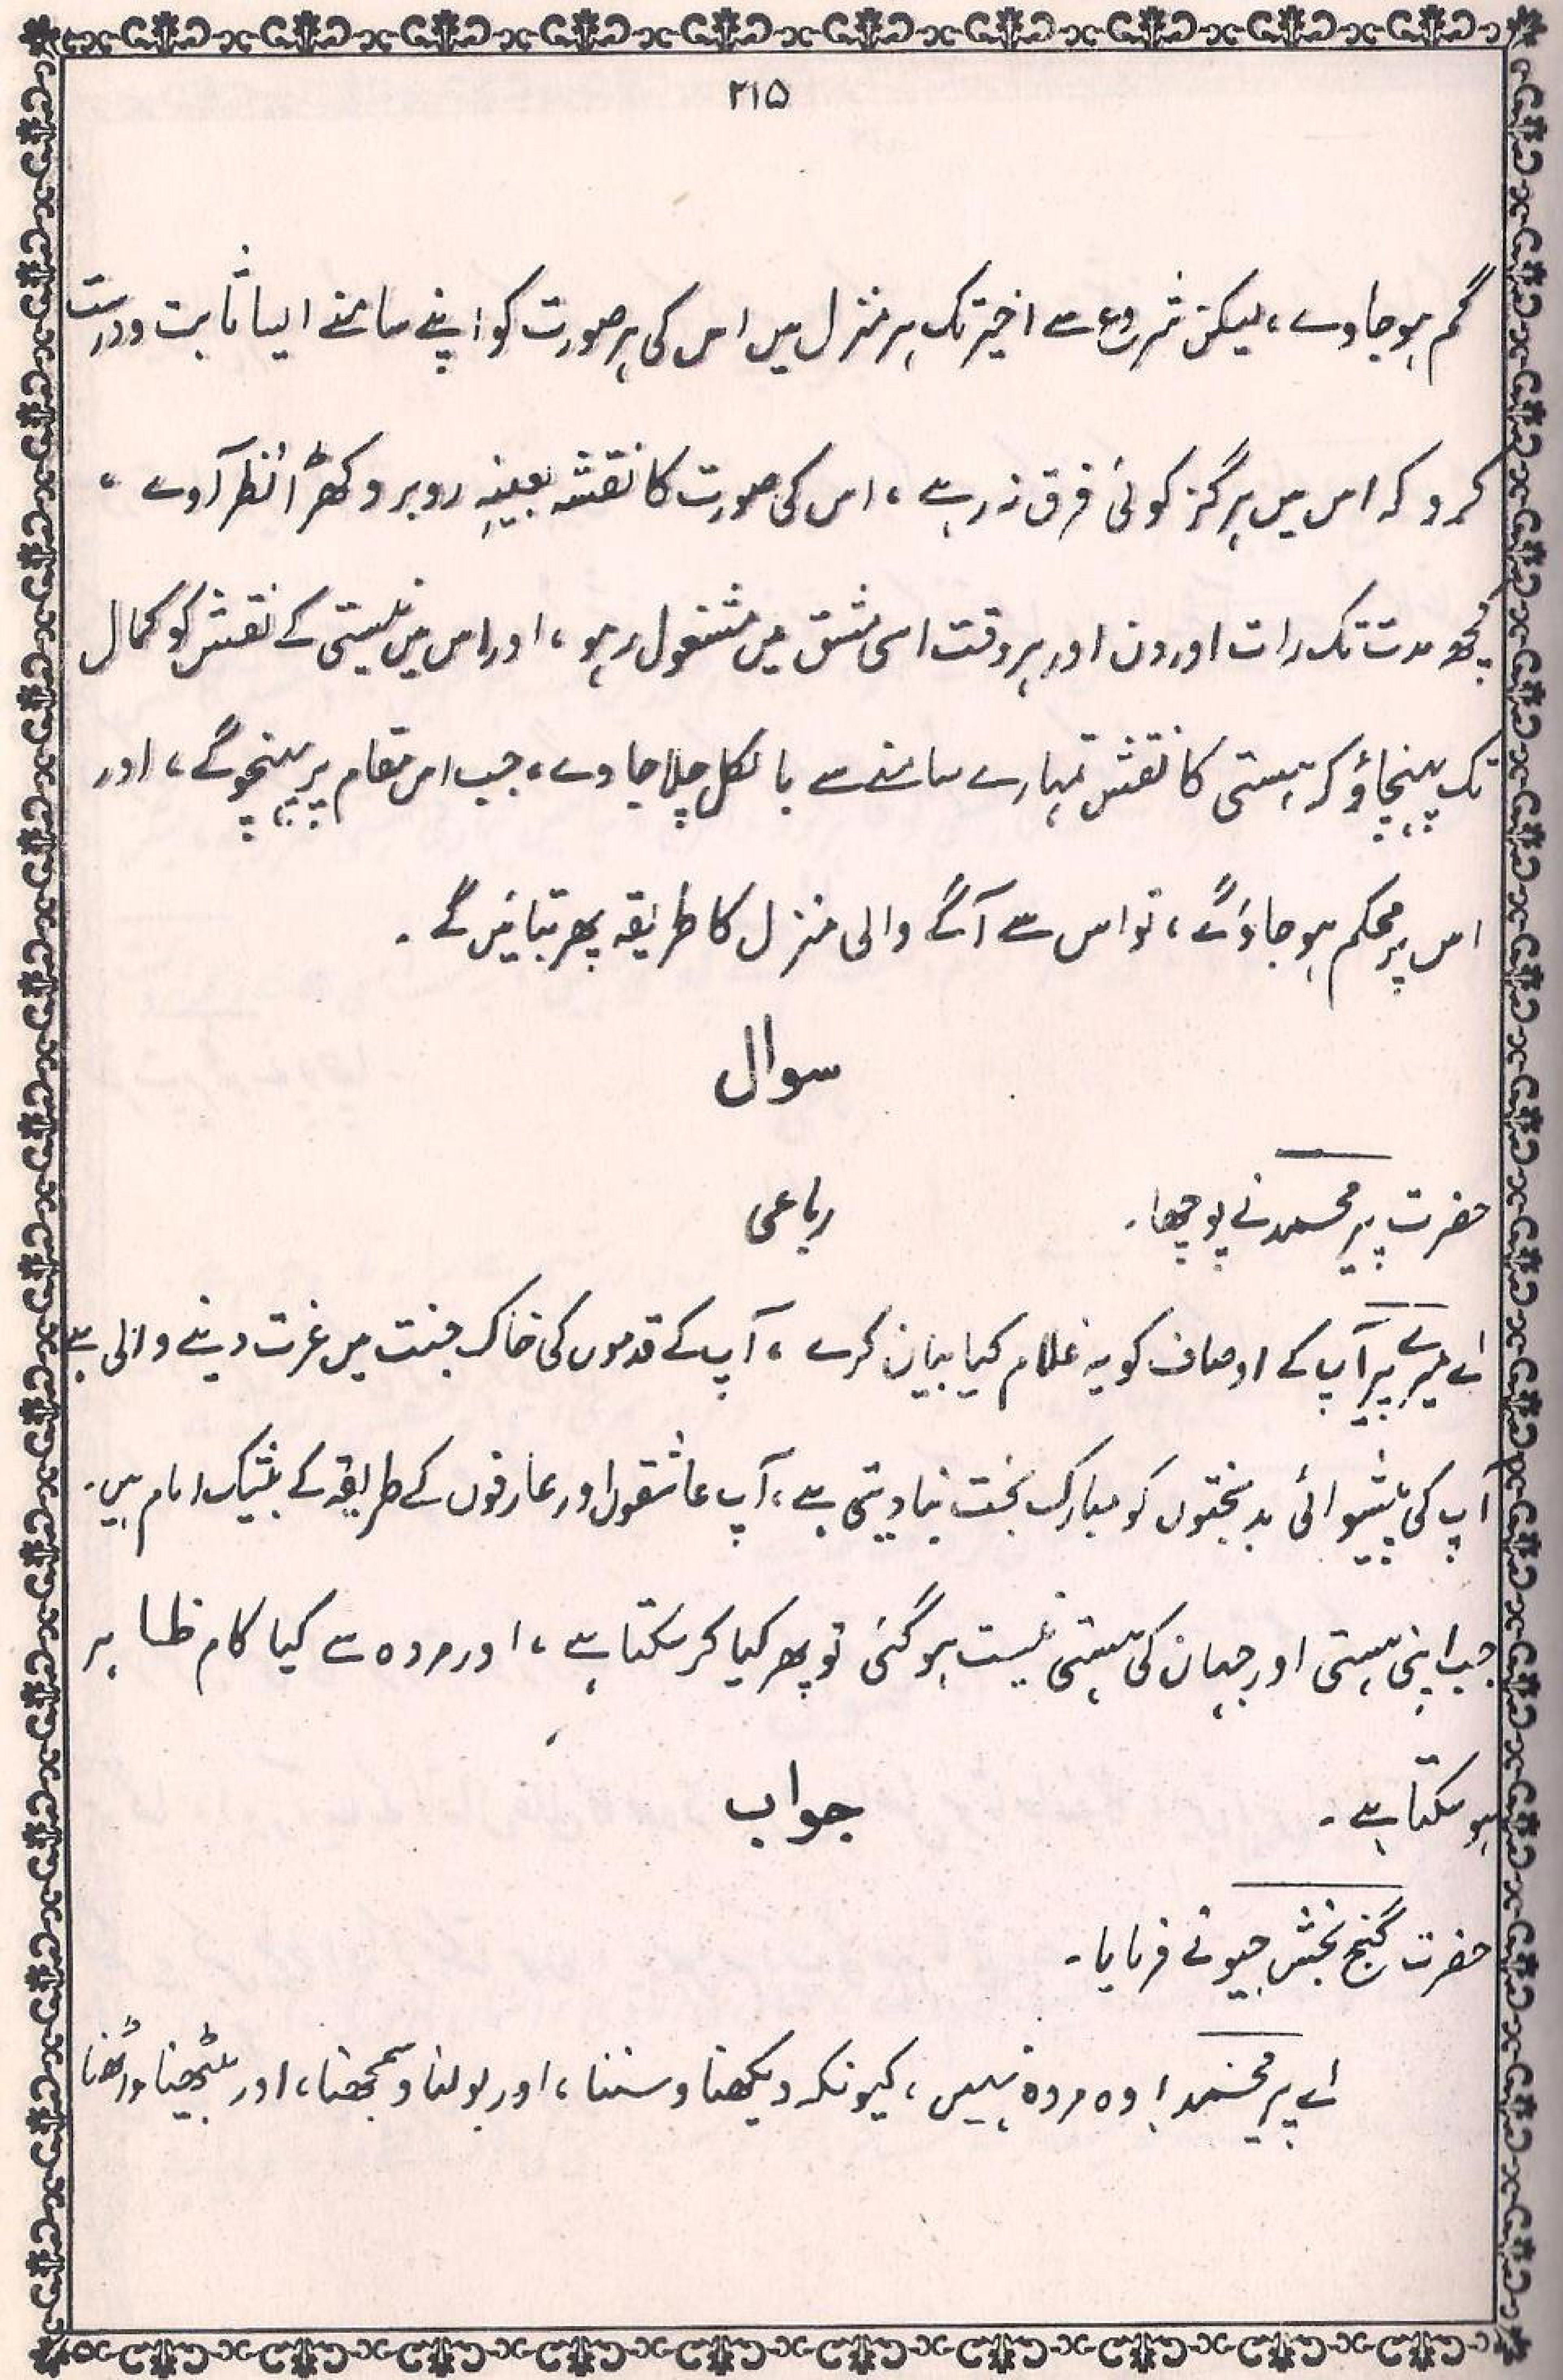 ۲۱۵
گم ہو جاوے، لیکن شروع سے اخیر تک ہر منزل میں اس کی ہر صورت کو اپنے سامنے ایسا ثابت و درست
کرو کہ اس میں ہرگز کوئی فرق نہ رہے، اس کی صورت کا نقشہ بعینہٖ روبرو کھڑا نظر آوے،
کچھ مدت تک رات اور دن اور ہر وقت اسی مشق میں مشغول رہو، اور اس میں نیستی کے نقش کو کمال
تک پہنچاؤ کہ ہستی کا نقش تمہارے سامنے سے بالکل چلا جاوے، جب اس مقام پر پہنچو گے، اور
اس پر محکم ہو جاؤ گے، تو اس سے آگے والی منزل کا طریقہ پھر بتائیں گے۔
سوال
حضرت پیر محمد نے پوچھا۔ رباعی
اے میرے پیر آپ کے اوصاف کو یہ غلام کیا بیان کرے، آپ کے قدموں کی خاک جنت میں عزت دینے والی ہے
آپ کی پیشوائی بدبختوں کو مبارک بخت بنا دیتی ہے، آپ عاشقوں اور عارفوں کے طریقہ کے بیشک امام ہیں۔
جب اپنی ہستی اور جہان کی ہستی نیست ہو گئی تو پھر کیا کر سکتا ہے، اور مردہ سے کیا کام ظاہر
ہو سکتا ہے۔ جواب
حضرت گنج بخش جیو نے فرمایا۔
اے پیر محمد! وہ مردہ نہیں، کیونکہ دیکھنا و سننا، اور بولنا و سمجھنا، اور بیٹھنا و اٹھنا